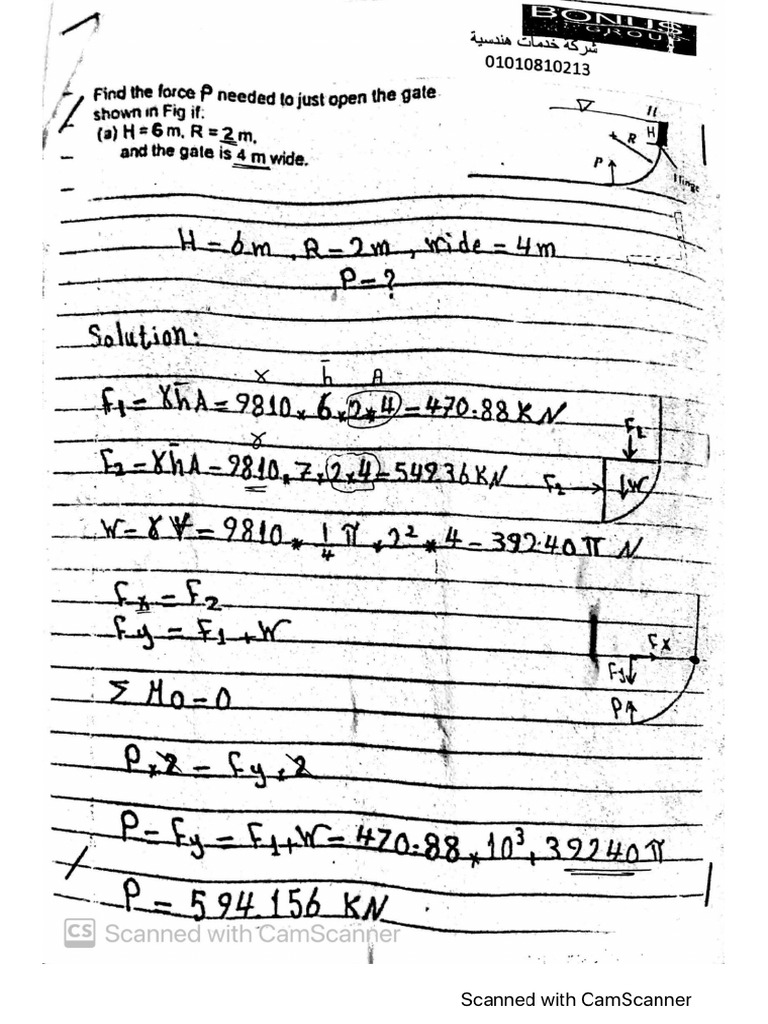 BONUS
GROUP
شركة خدمات هندسية
01010810213
Find the force P needed to just open the gate
shown in Fig if:
(a) H = 6 m, R = 2 m,
and the gate is 4 m wide.
H
R
P
Hinge
H = 6m , R = 2m , wide = 4m
P = ?
Solution:
γ h̄ A
F1 = γh̄A = 9810 * 6 * 2*4 = 470.88 KN
γ
F2 = γh̄A = 9810 * 7 * 2*4 = 549.36 KN
F1
F2 W
W = γ V = 9810 * 1/4 π * 2² * 4 = 39240 π N
Fx = F2
Fy = F1 + W
Fx
Fy
P
Σ Mo = 0
P * 2 = Fy * 2
P = Fy = F1 + W = 470.88 * 10³ + 39240 π
P = 594.156 KN
CS Scanned with CamScanner
Scanned with CamScanner